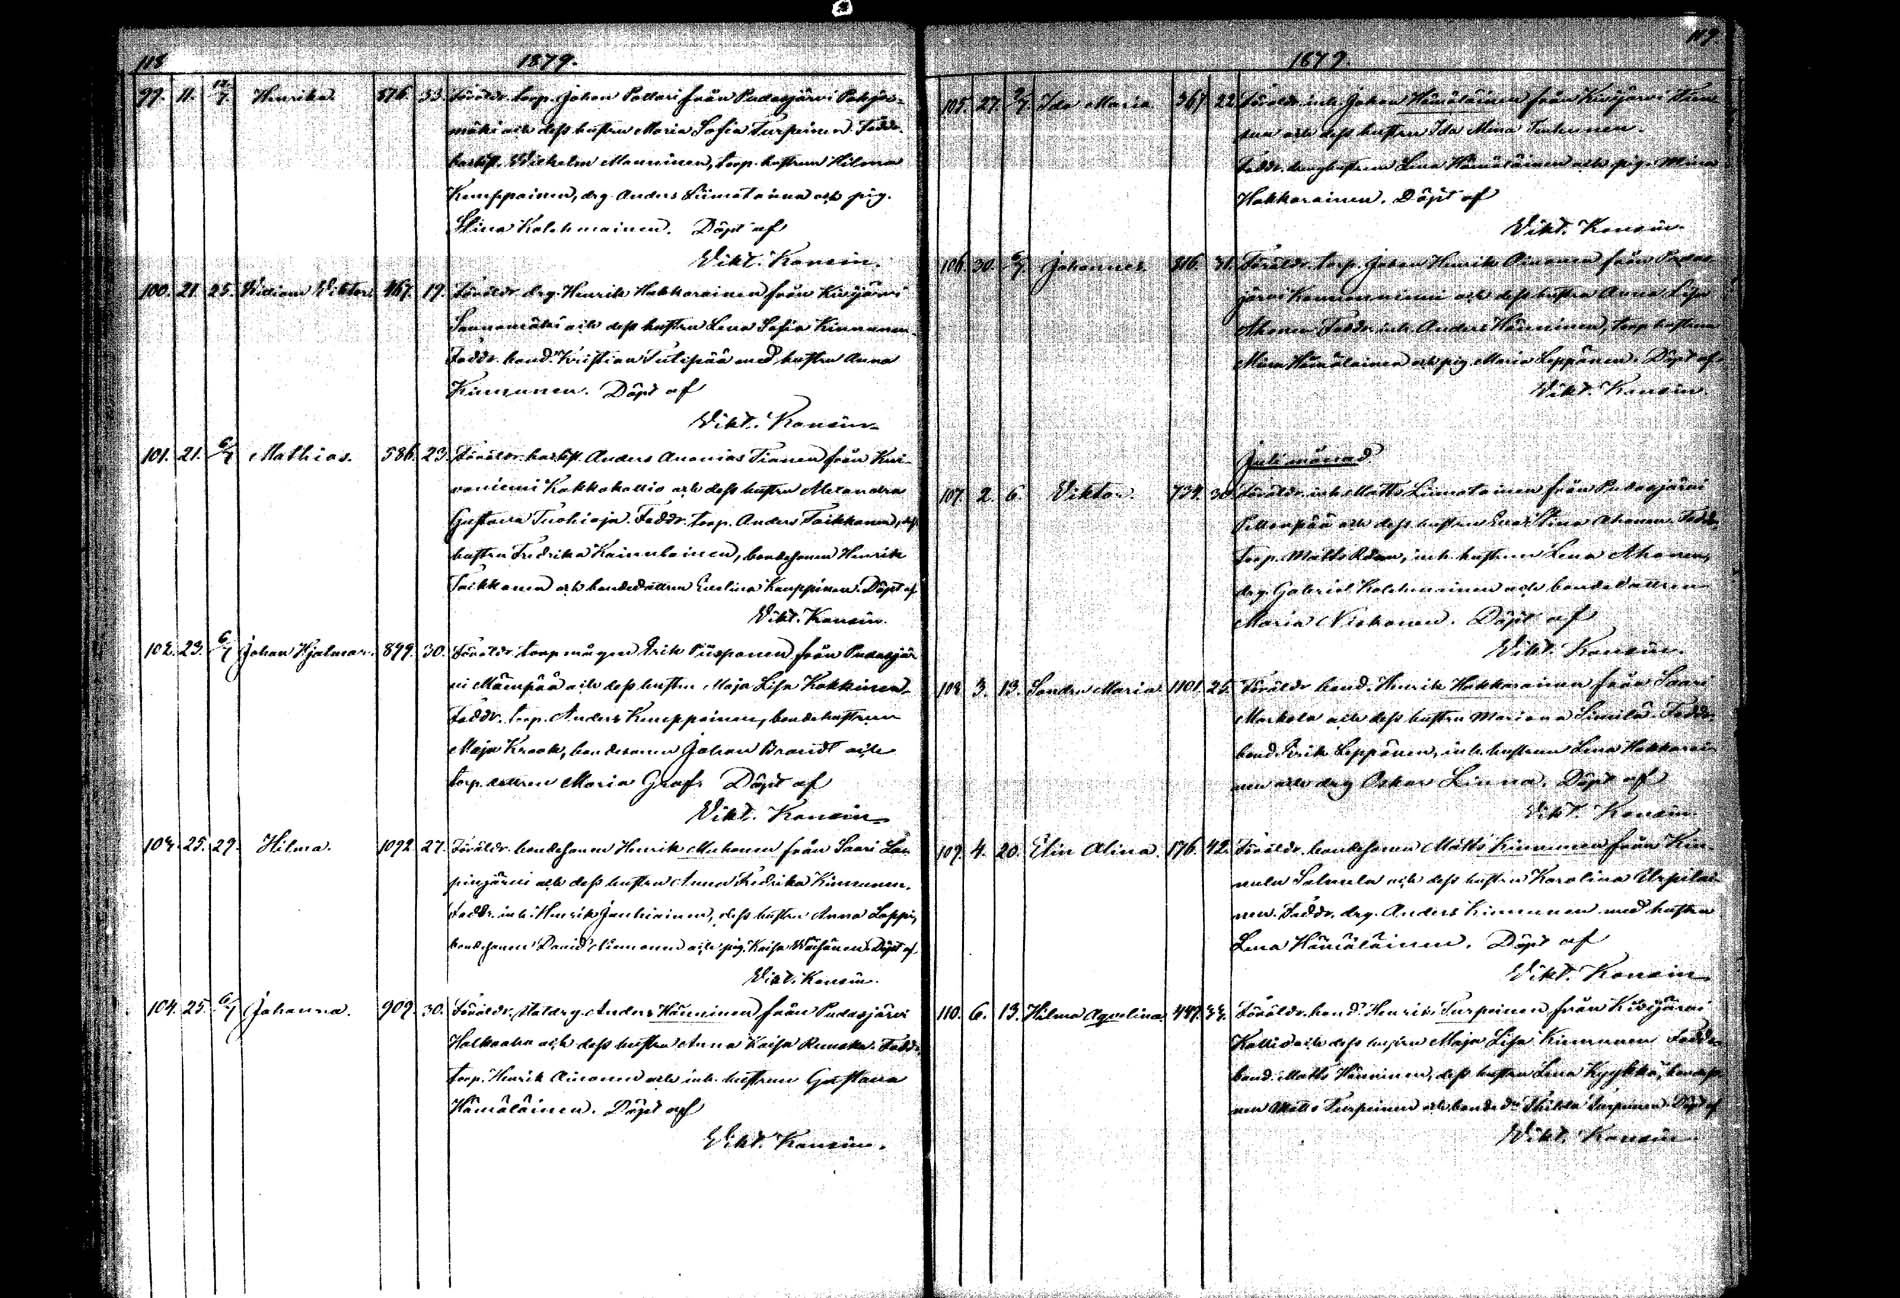 118
1879.
99. 11. 12/7 Henrika. 876. 33. Föräldr. torp. Johan Pollari från Pudasjärvi Pohjos-
mäki och dess hustru Maria Sofia Turpeinen. Faddr.
Wilhelm Manninen, torp. hustrun Hilma
Kemppainen, drg. Anders Liimatainen och pig.
Stina Kolehmainen. Döpt af
Vikt. Konsin.
100. 21. 25. Viktor. 467. 19. Föräldr. drg. Henrik Hakkarainen från Kivijärvi
och dess hustru Lena Sofia Kinnunen.
Faddr. bond. Kristian med hustru Anna
Kinnunen. Döpt af
Vikt. Konsin.
101. 21. 6/7 Mathias. 586. 23. Föräldr. Anders Ananias från
Kokkokallio och dess hustru Alexandra
Gustava Faddr. torp. Anders Taikkonen, dess
hustru Fredrika Kainulainen, bondesonen Henrik
Taikkonen och bondedottren Evelina Kemppinen. Döpt af
Vikt. Konsin.
102. 23. 6/7 Johan Hjalmar. 899. 30. Föräldr. torp. mågen Erik Piisponen från Pudasjär-
vi och dess hustru Maja Lisa Kokkinen.
Faddr. torp. Anders Kemppainen, bondehustrun
Maja Krook, bondesonen Johan Brandt och
torp. dottren Maria Graf. Döpt af
Vikt. Konsin.
103. 25. 29. Hilma. 1092. 27. Föräldr. bondesonen Henrik Muhonen från Saari
och dess hustru Anna Fredrika Kinnunen.
Faddr. inh. Henrik Jauhiainen, dess hustru Anna Leppi,
bondesonen David och pig. Kaisa Väisänen. Döpt af
Vikt. Konsin.
104. 25. 6/7 Johanna. 909. 30. Föräldr. Anders Hänninen från Pudasjärvi
och dess hustru Anna Kaisa Faddr.
torp. Henrik Ainonen och inh. hustrun Gustava
Hämäläinen. Döpt af
Vikt. Konsin.
119.
1879.
105. 27. 2/7 Ida Maria 367. 22. Föräldr. inh. Johan Hämäläinen från Kivijärvi
och dess hustru Ida Mina
Faddr. dränghustrun Lena Hämäläinen och pig. Mina
Hakkarainen. Döpt af
Vikt. Konsin.
106. 30. 6/7 Johannes. 816. 31. Föräldr. torp. Johan Henrik Ainonen från Pudas-
järvi och dess hustru Anna Lisa
Ahonen. Faddr. inh. Anders Hänninen, torp. hustrun
Mina Hämäläinen och pig. Maria Leppänen. Döpt af
Vikt. Konsin.
Juli månad.
107. 2. 6. Viktor. 734. 30. Föräldr. inh. Matts Liimatainen från Pudasjärvi
och dess hustru Eva Stina Ahonen. Faddr.
torp. Matts inh. hustrun Lena Ahonen,
drg. Gabriel Kolehmainen och bondedottren
Maria Niskanen. Döpt af
Vikt. Konsin.
108. 3. 13. Sandra Maria. 1101. 25. Föräldr. bond. Henrik Hakkarainen från Saari
Markola och dess hustru Mariana Similä. Faddr.
bond. Erik Leppänen, inh. hustrun Lena Hakkarai-
nen och drg. Oskar Linna. Döpt af
Vikt. Konsin.
109. 4. 20. Elin Alina. 176. 42. Föräldr. bondesonen Matts Kinnunen från Kin-
nula Salmela och dess hustru Karolina Urpilai-
nen. Faddr. drg. Anders Kinnunen med hustru
Lena Hämäläinen. Döpt af
Vikt. Konsin.
110. 6. 13. Hilma Aqvelina. 487. 33. Föräldr. bond. Henrik Turpeinen från Kivijärvi
Kallio och dess hustru Maja Lisa Kinnunen. Faddr.
bond. Matts Hänninen, dess hustru Lena Kyykkä, bondeso-
nen Matts Turpeinen och bonded. Thilda Turpeinen. Döpt af
Vikt. Konsin.